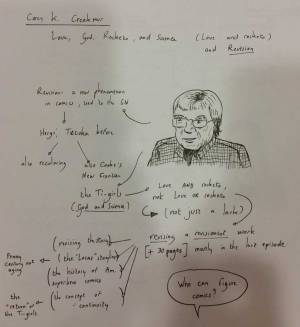 Corey K. Creekmur
Love, God, Rockets, and Science (Love and rockets)
and Revising
Revision: a new phenomenon
in comics, tied to the GN
Hergé, Tezuka before
also recoloring
also Cooke's
New Frontier
the Ti-girls
(God and Science)
Love AND rockets,
not Love OR rockets
(not just a lark)
revising, a revisionist work
[+ 30 pages] mostly in the last episode
revising the story
(the "Locas" storyline)
the history of Am.
superhero comics
the concept of
continuity
Penny Century not
aging
the
"return" of
the Ti-Girls
Who can figure
comics?